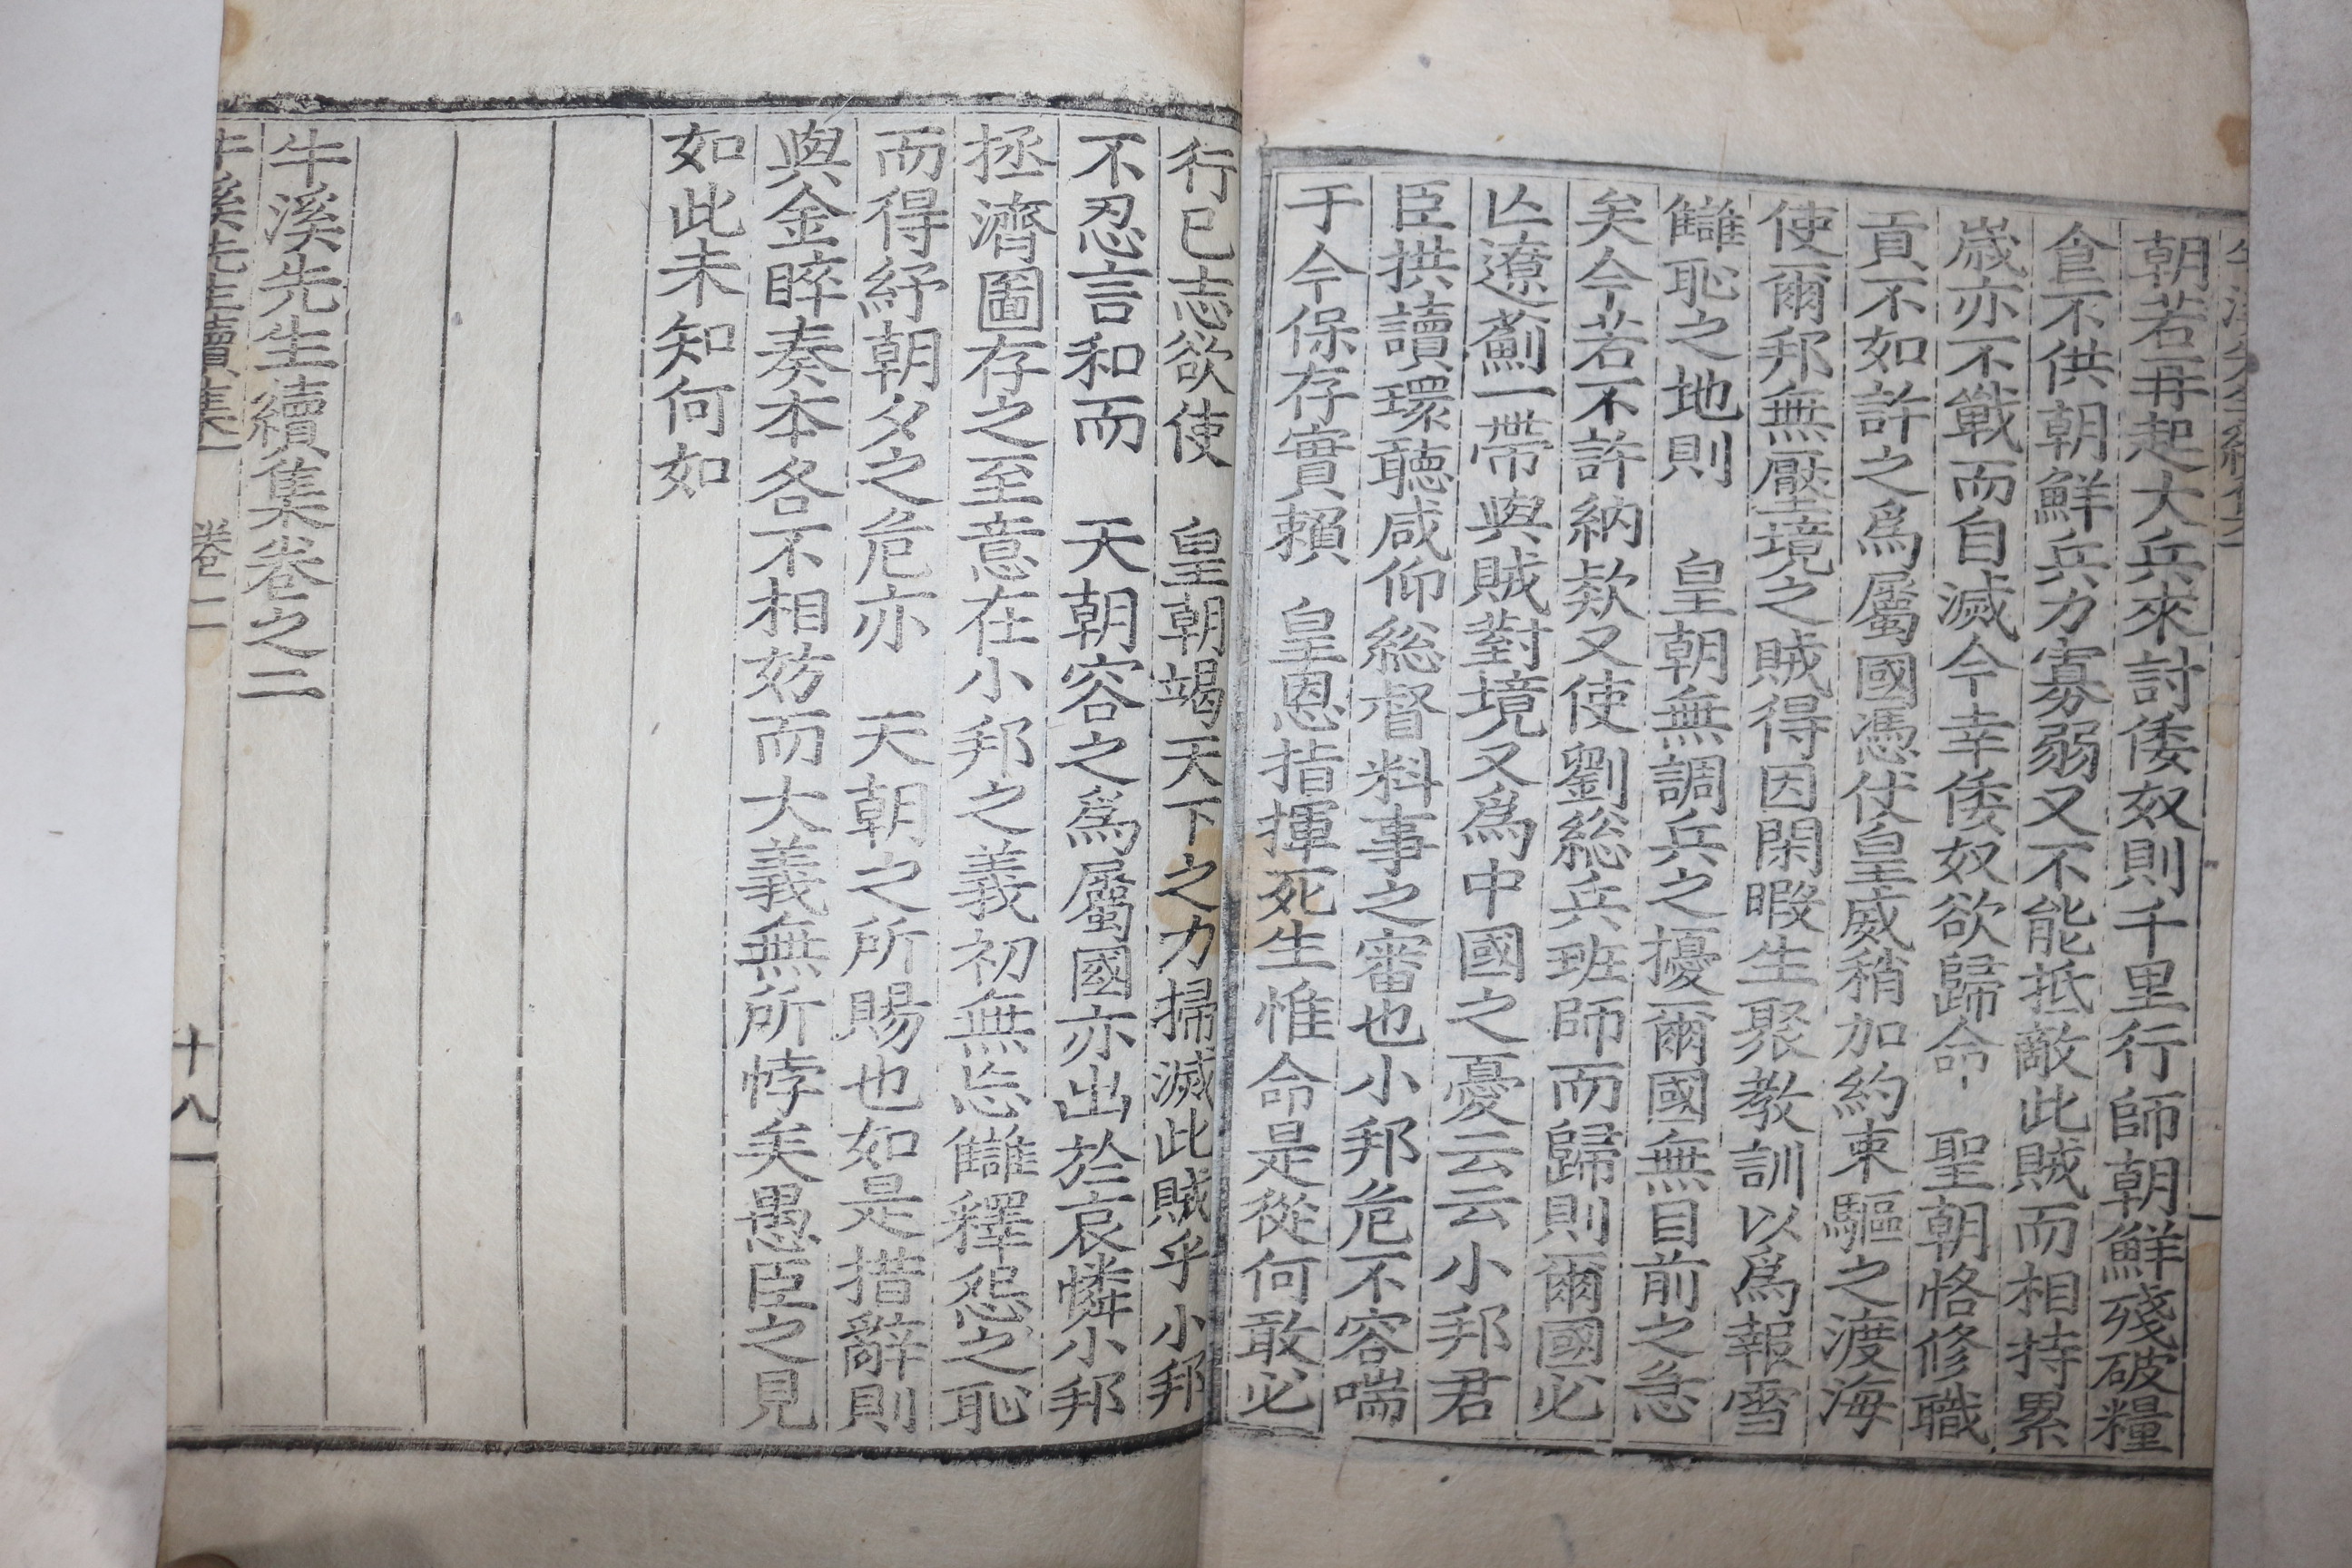 朝若再起大兵來討倭奴則千里行師朝鮮殘破糧
食不供朝鮮兵力寡弱又不能抵敵此賊而相持累
歲亦不戰而自滅今幸倭奴欲歸命 聖朝恪修職
貢不如許之爲屬國憑仗皇威稍加約束驅之渡海
使爾邦無壓境之賊得因閑暇生聚敎訓以爲報雪
讎恥之地則 皇朝無調兵之擾爾國無目前之急
矣今若不許納欵又使劉總兵班師而歸則爾國必
亡遼薊一帶與賊對境又爲中國之憂云云小邦君
臣拱讀環聽咸仰總督料事之審也小邦危不容喘
于今保存實賴 皇恩指揮死生惟命是從何敢必
行已志欲使 皇朝竭天下之力掃滅此賊乎小邦
不忍言和而 天朝容之爲屬國亦出於哀憐小邦
拯濟圖存之至意在小邦之義初無忘讎釋怨之恥
而得紓朝夕之危亦 天朝之所賜也如是措辭則
與金睟奏本各不相妨而大義無所悖矣愚臣之見
如此未知何如
牛溪先生續集卷之二
牛溪先生續集 卷二 十八